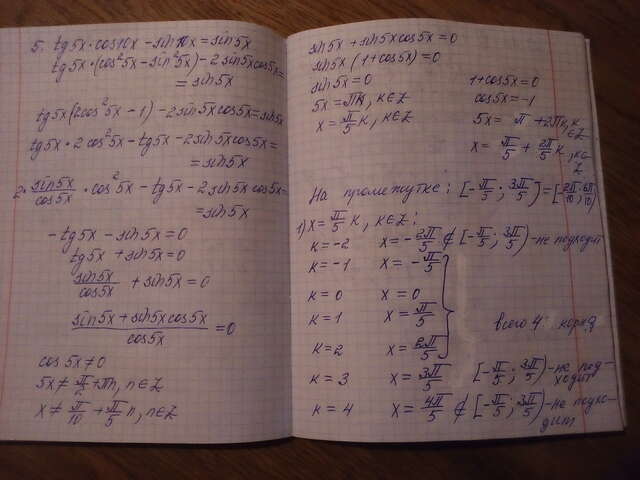 5. tg5x · cos10x - sin10x = sin5x
tg5x · (cos²5x - sin²5x) - 2sin5xcos5x =
= sin5x
tg5x(2cos²5x - 1) - 2sin5xcos5x = sin5x
tg5x · 2cos²5x - tg5x - 2sin5xcos5x =
= sin5x
2 · sin5x/cos5x · cos²5x - tg5x - 2sin5xcos5x =
= sin5x
- tg5x - sin5x = 0
tg5x + sin5x = 0
sin5x/cos5x + sin5x = 0
(sin5x + sin5xcos5x)/cos5x = 0
cos5x ≠ 0
5x ≠ π/2 + πn, n∈Z
x ≠ π/10 + π/5 n, n∈Z
sin5x + sin5xcos5x = 0
sin5x(1 + cos5x) = 0
sin5x = 0
5x = πk, k∈Z
x = π/5 k, k∈Z
1 + cos5x = 0
cos5x = -1
5x = π + 2πk, k∈Z
x = π/5 + 2π/5 k, k∈Z
На промежутке: [-π/5; 3π/5) =
1) x = π/5 k, k∈Z:
k = -2 x = -2π/5 ∉ [-π/5; 3π/5) - не подходит
k = -1 x = -π/5
k = 0 x = 0
k = 1 x = π/5
k = 2 x = 2π/5
всего 4 корня
k = 3 x = 3π/5 [-π/5; 3π/5) - не подходит
k = 4 x = 4π/5 ∉ [-π/5; 3π/5) - не подходит